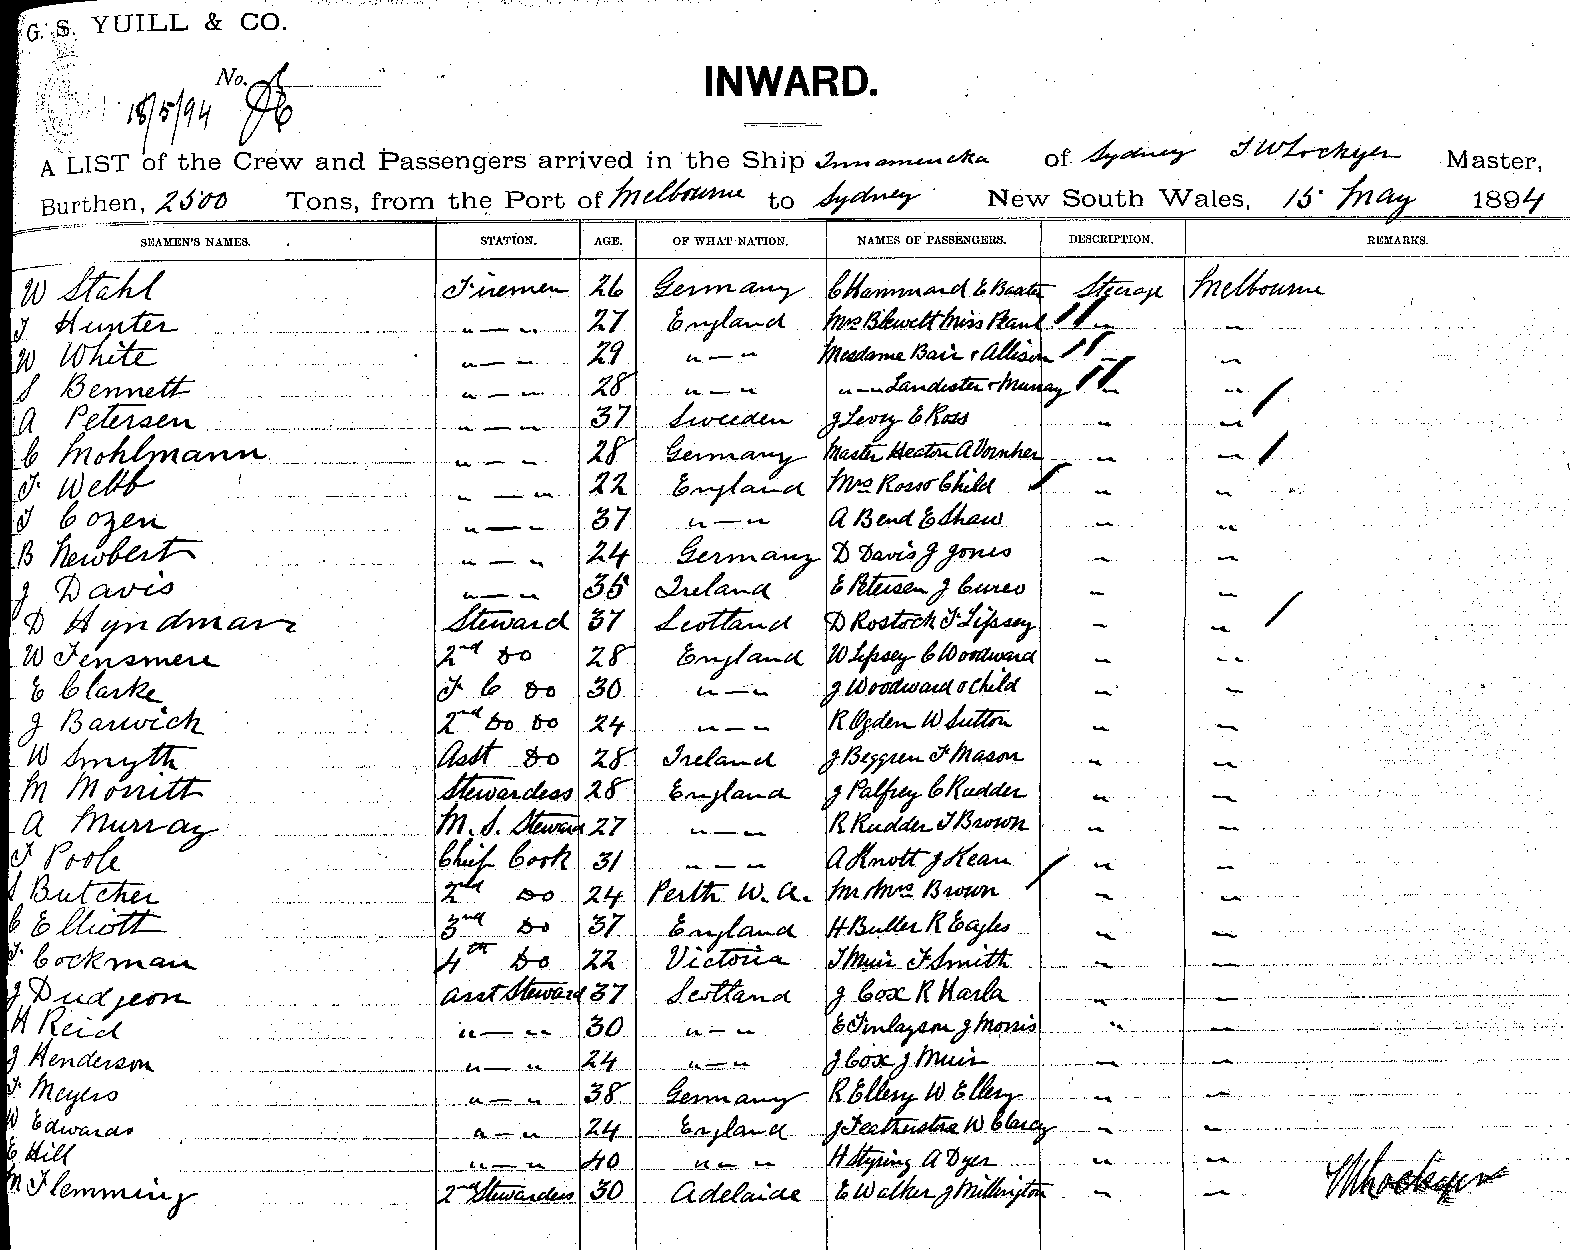 G. S. YUILL & CO.
INWARD.
No.
18/5/94
A LIST of the Crew and Passengers arrived in the Ship Innamincka of Sydney T W Lockyer Master,
Burthen, 2500 Tons, from the Port of Melbourne to Sydney New South Wales, 15 May 1894
SEAMEN'S NAMES. STATION. AGE. OF WHAT NATION. NAMES OF PASSENGERS. DESCRIPTION. REMARKS.
W Stahl Firemen 26 Germany C Hammard E Baxter Steerage Melbourne
T Hunter " — " 27 England Mrs Blewett Miss Pearl " "
W White " — " 29 " — " Mesdame Bair & Allison " "
S Bennett " — " 28 " — " " — " Landester & Murray " "
A Petersen " — " 37 Sweeden J Levy E Ross " "
C Mohlmann " — " 28 Germany Master Heaton A Vornher " "
F Webb " — " 22 England Mrs Ross & Child " "
T Cozen " — " 37 " — " A Bend E Shaw " "
B Newbert " — " 24 Germany D Davis J Jones " "
J Davis " — " 35 Ireland E Petersen J Cureo " "
D Hyndman Steward 37 Scotland D Rostock F Lipsey " "
W Finsmere 2nd Do 28 England W Lipsey C Woodward " "
E Clarke F C Do 30 " — " J Woodward & Child " "
J Barwick 2nd Do Do 24 " — " R Ogden W Sutton " "
W Smyth Asst Do 28 Ireland J Beggren F Mason " "
M Morritt Stewardess 28 England J Palfrey C Rudder " "
A Murray M. S. Steward 27 " — " R Rudder T Brown " "
F Poole Chief Cook 31 " — " A Knott J Kean " "
S Butcher 2nd Do 24 Perth W. A. Mr Mrs Brown " "
C Elliott 3rd Do 37 England H Buller R Eagles " "
F Cockman 4th Do 22 Victoria T Muir F Smith " "
J Dudgeon Asst Steward 37 Scotland J Cox R Harla " "
H Reid " — " 30 " — " E Finlayson J Morris " "
J Henderson " — " 24 " — " J Cox J Muir " "
F Meyers " — " 38 Germany R Ellery W Ellery " "
W Edwards " — " 24 England J Featherstre W Clarcy " "
E Hill " — " 40 " — " H Styring A Dyer " "
M Flemming 2nd Stewardess 30 Adelaide E Walker J Millington " "
T W Lockyer